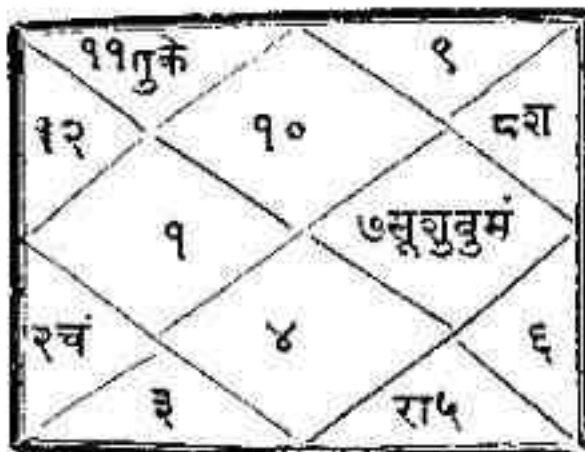 ११तुके
९
१२
१०
८श
१
७सूशुबुमं
२चं
४
६
३
रा५